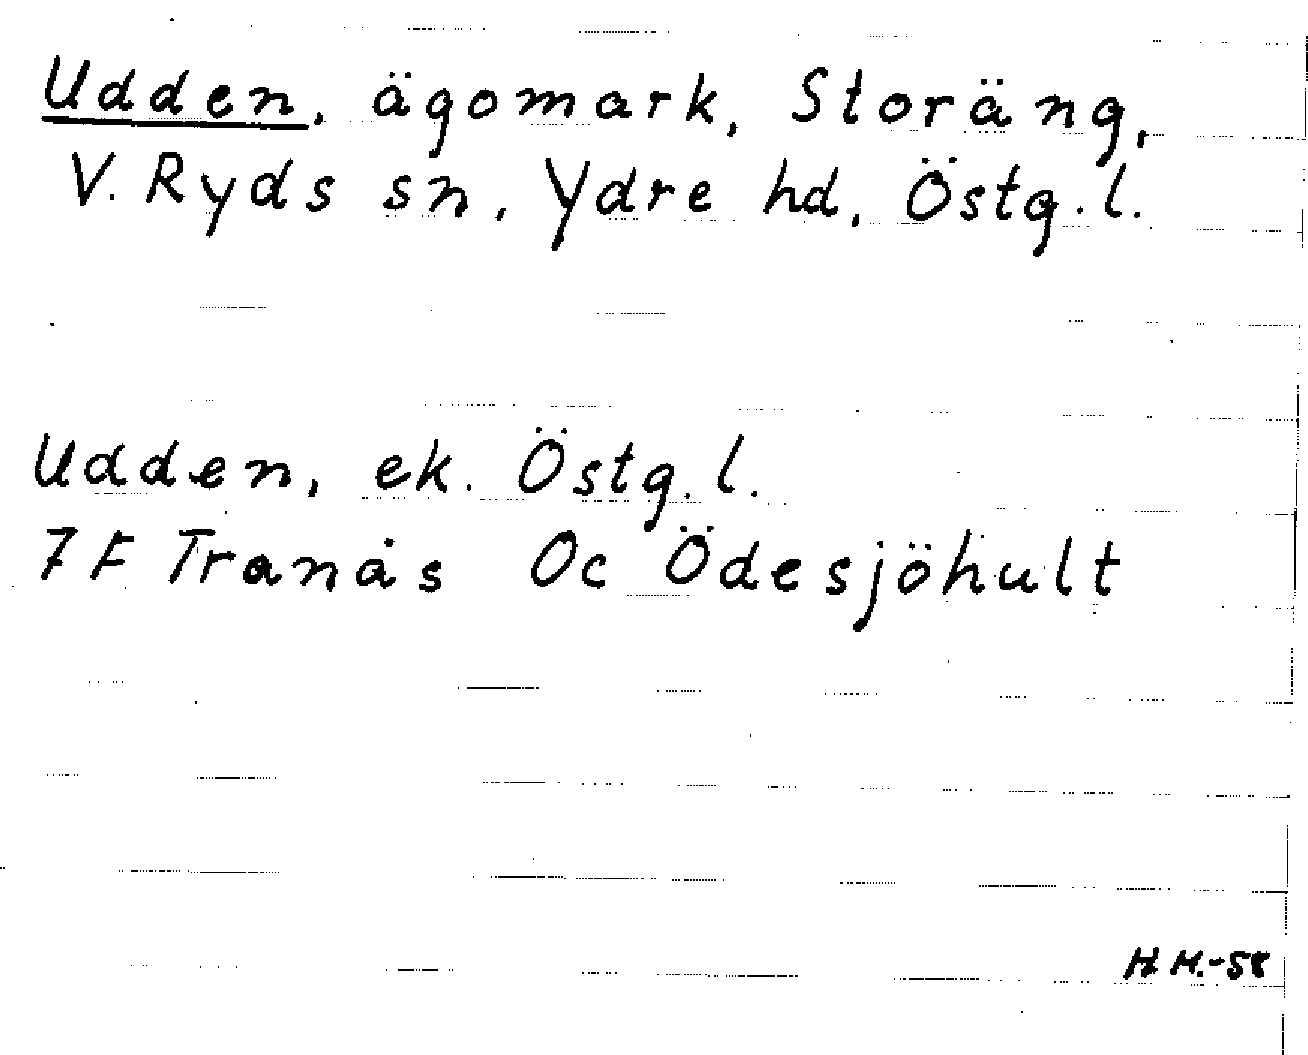 Udden, ägomark, Storäng,
V. Ryds sn, Ydre hd, Östg. l.
Udden, ek. Östg. l.
7 F Tranås Oc Ödesjöhult
H.M.-58